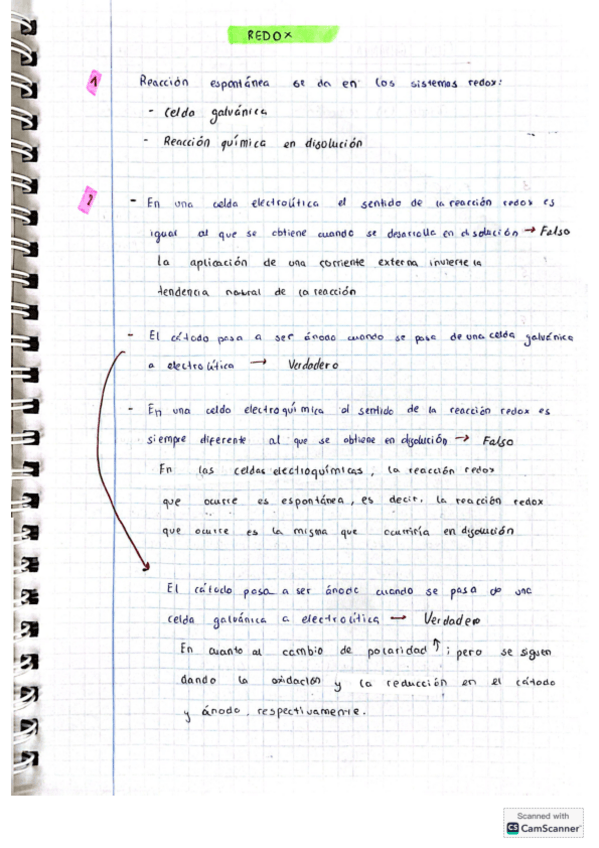 REDOX
1 Reacción espontánea se da en los sistemas redox:
- Celda galvánica
- Reacción química en disolución
2 - En una celda electrolítica el sentido de la reacción redox es
igual al que se obtiene cuando se desarrolla en disolución → Falso
La aplicación de una corriente externa invierte la
tendencia natural de la reacción
- El cátodo pasa a ser ánodo cuando se pasa de una celda galvánica
a electrolítica → Verdadero
- En una celda electroquímica el sentido de la reacción redox es
siempre diferente al que se obtiene en disolución → Falso
En las celdas electroquímicas, la reacción redox
que ocurre es espontánea, es decir, la reacción redox
que ocurre es la misma que ocurriría en disolución
El cátodo pasa a ser ánodo cuando se pasa de una
celda galvánica a electrolítica → Verdadero
En cuanto al cambio de polaridad ↑; pero se siguen
dando la oxidación y la reducción en el cátodo
y ánodo, respectivamente.
Scanned with
CS CamScanner